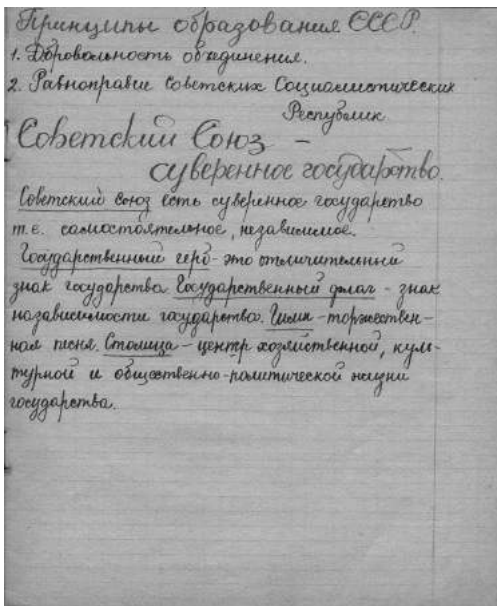 Принципы образования СССР.
1. Добровольность объединения.
2. Равноправие Советских Социалистических
Республик
Советский Союз –
суверенное государство.
Советский союз есть суверенное государство
т.е. самостоятельное, независимое.
Государственный герб - это отличительный
знак государства. Государственный флаг - знак
независимости государства. Гимн - торжествен-
ная песня. Столица - центр хозяйственной, куль-
турной и общественно-политической жизни
государства.